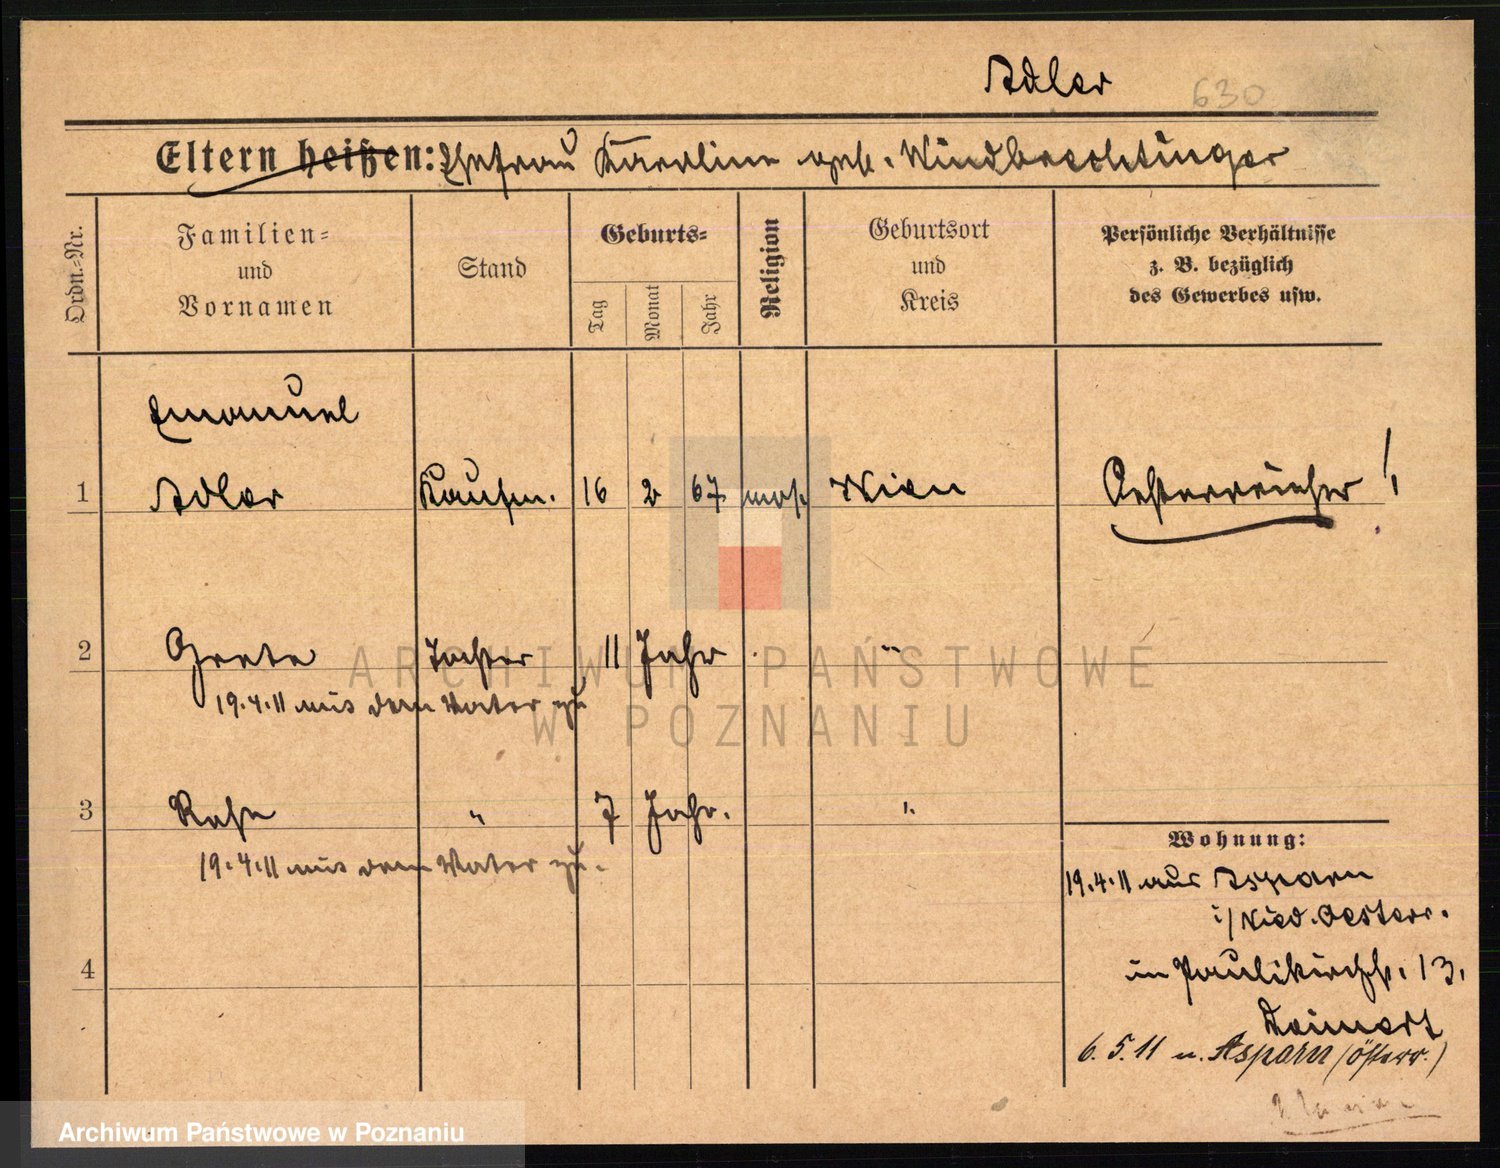 Adler 630
Eltern heißen: Ehefrau Karoline geb. Windbrechtinger
Ordn.-Nr.
Familien- und Vornamen
Stand
Geburts-
Tag
Monat
Jahr
Religion
Geburtsort und Kreis
Persönliche Verhältnisse
z. B. bezüglich
des Gewerbes usw.
Emanuel
1 Adler Kaufm. 16 2 67 mos. Wien Oesterreicher!
2 Grete Tochter 11 Jahr "
19.4.11 mit dem Vater zu
3 " 7 Jahr. "
19.4.11 mit dem Vater zu.
4
Wohnung:
19.4.11 aus Asparn
i/ Nied. Oesterr.
in Paulikirchstr. 13.
6.5.11 n. Asparn (Österr.)
ARCHIWUM PAŃSTWOWE
W POZNANIU
Archiwum Państwowe w Poznaniu